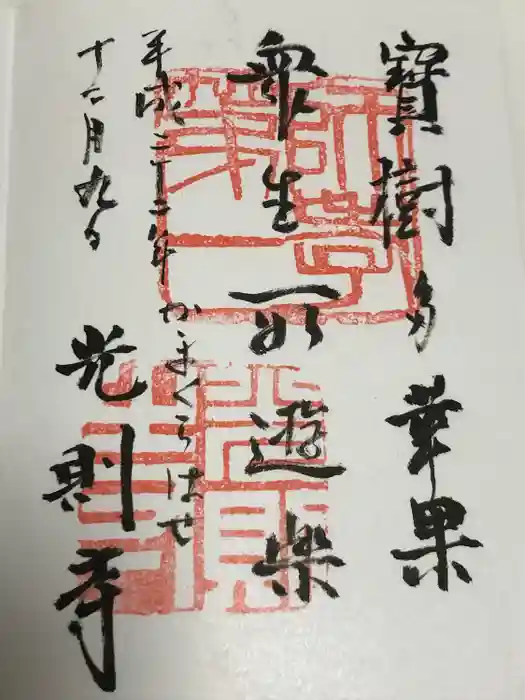 寶樹多華果
衆生所遊樂
平成二十二年 かまくらはせ
十二月九日
光則寺